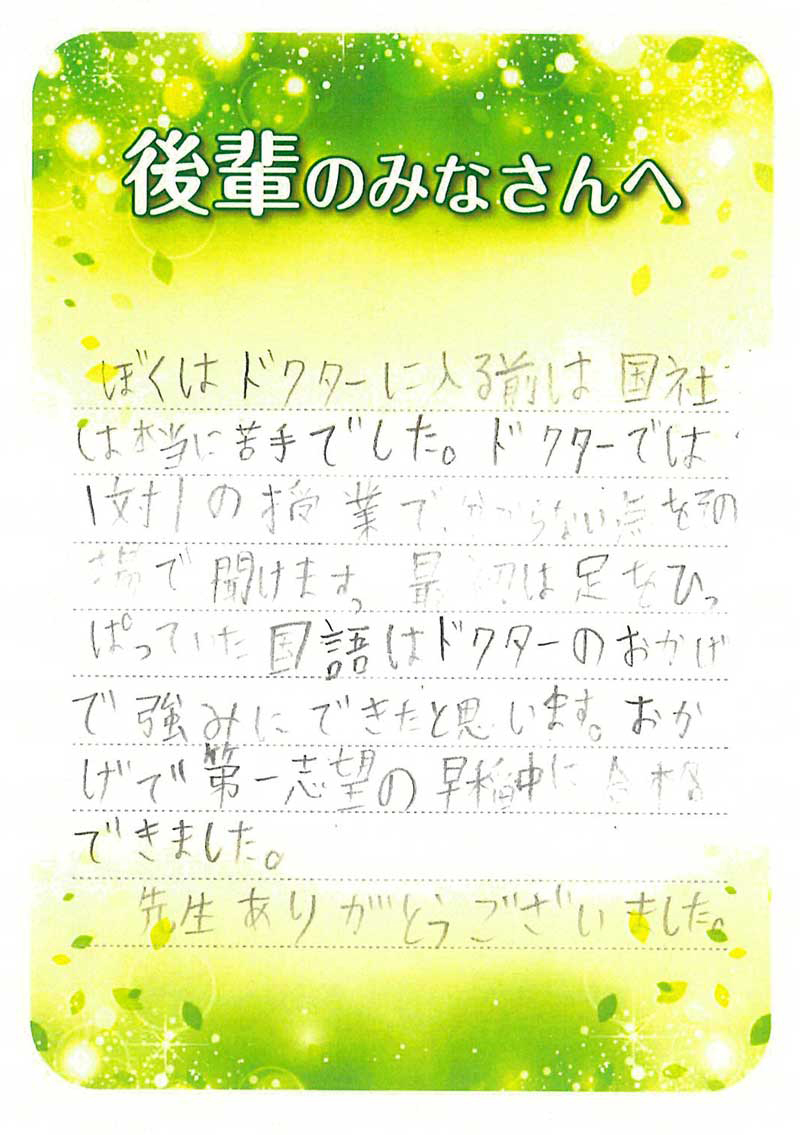 後輩のみなさんへ
ぼくはドクターに入る前は国社
は本当に苦手でした。ドクターでは
1対1の授業で、分からない点をその
場で聞けます。最初は足をひっ
ぱっていた国語はドクターのおかげ
で強みにできたと思います。おか
げで第一志望の早稲中に合格
できました。
先生ありがとうございました。